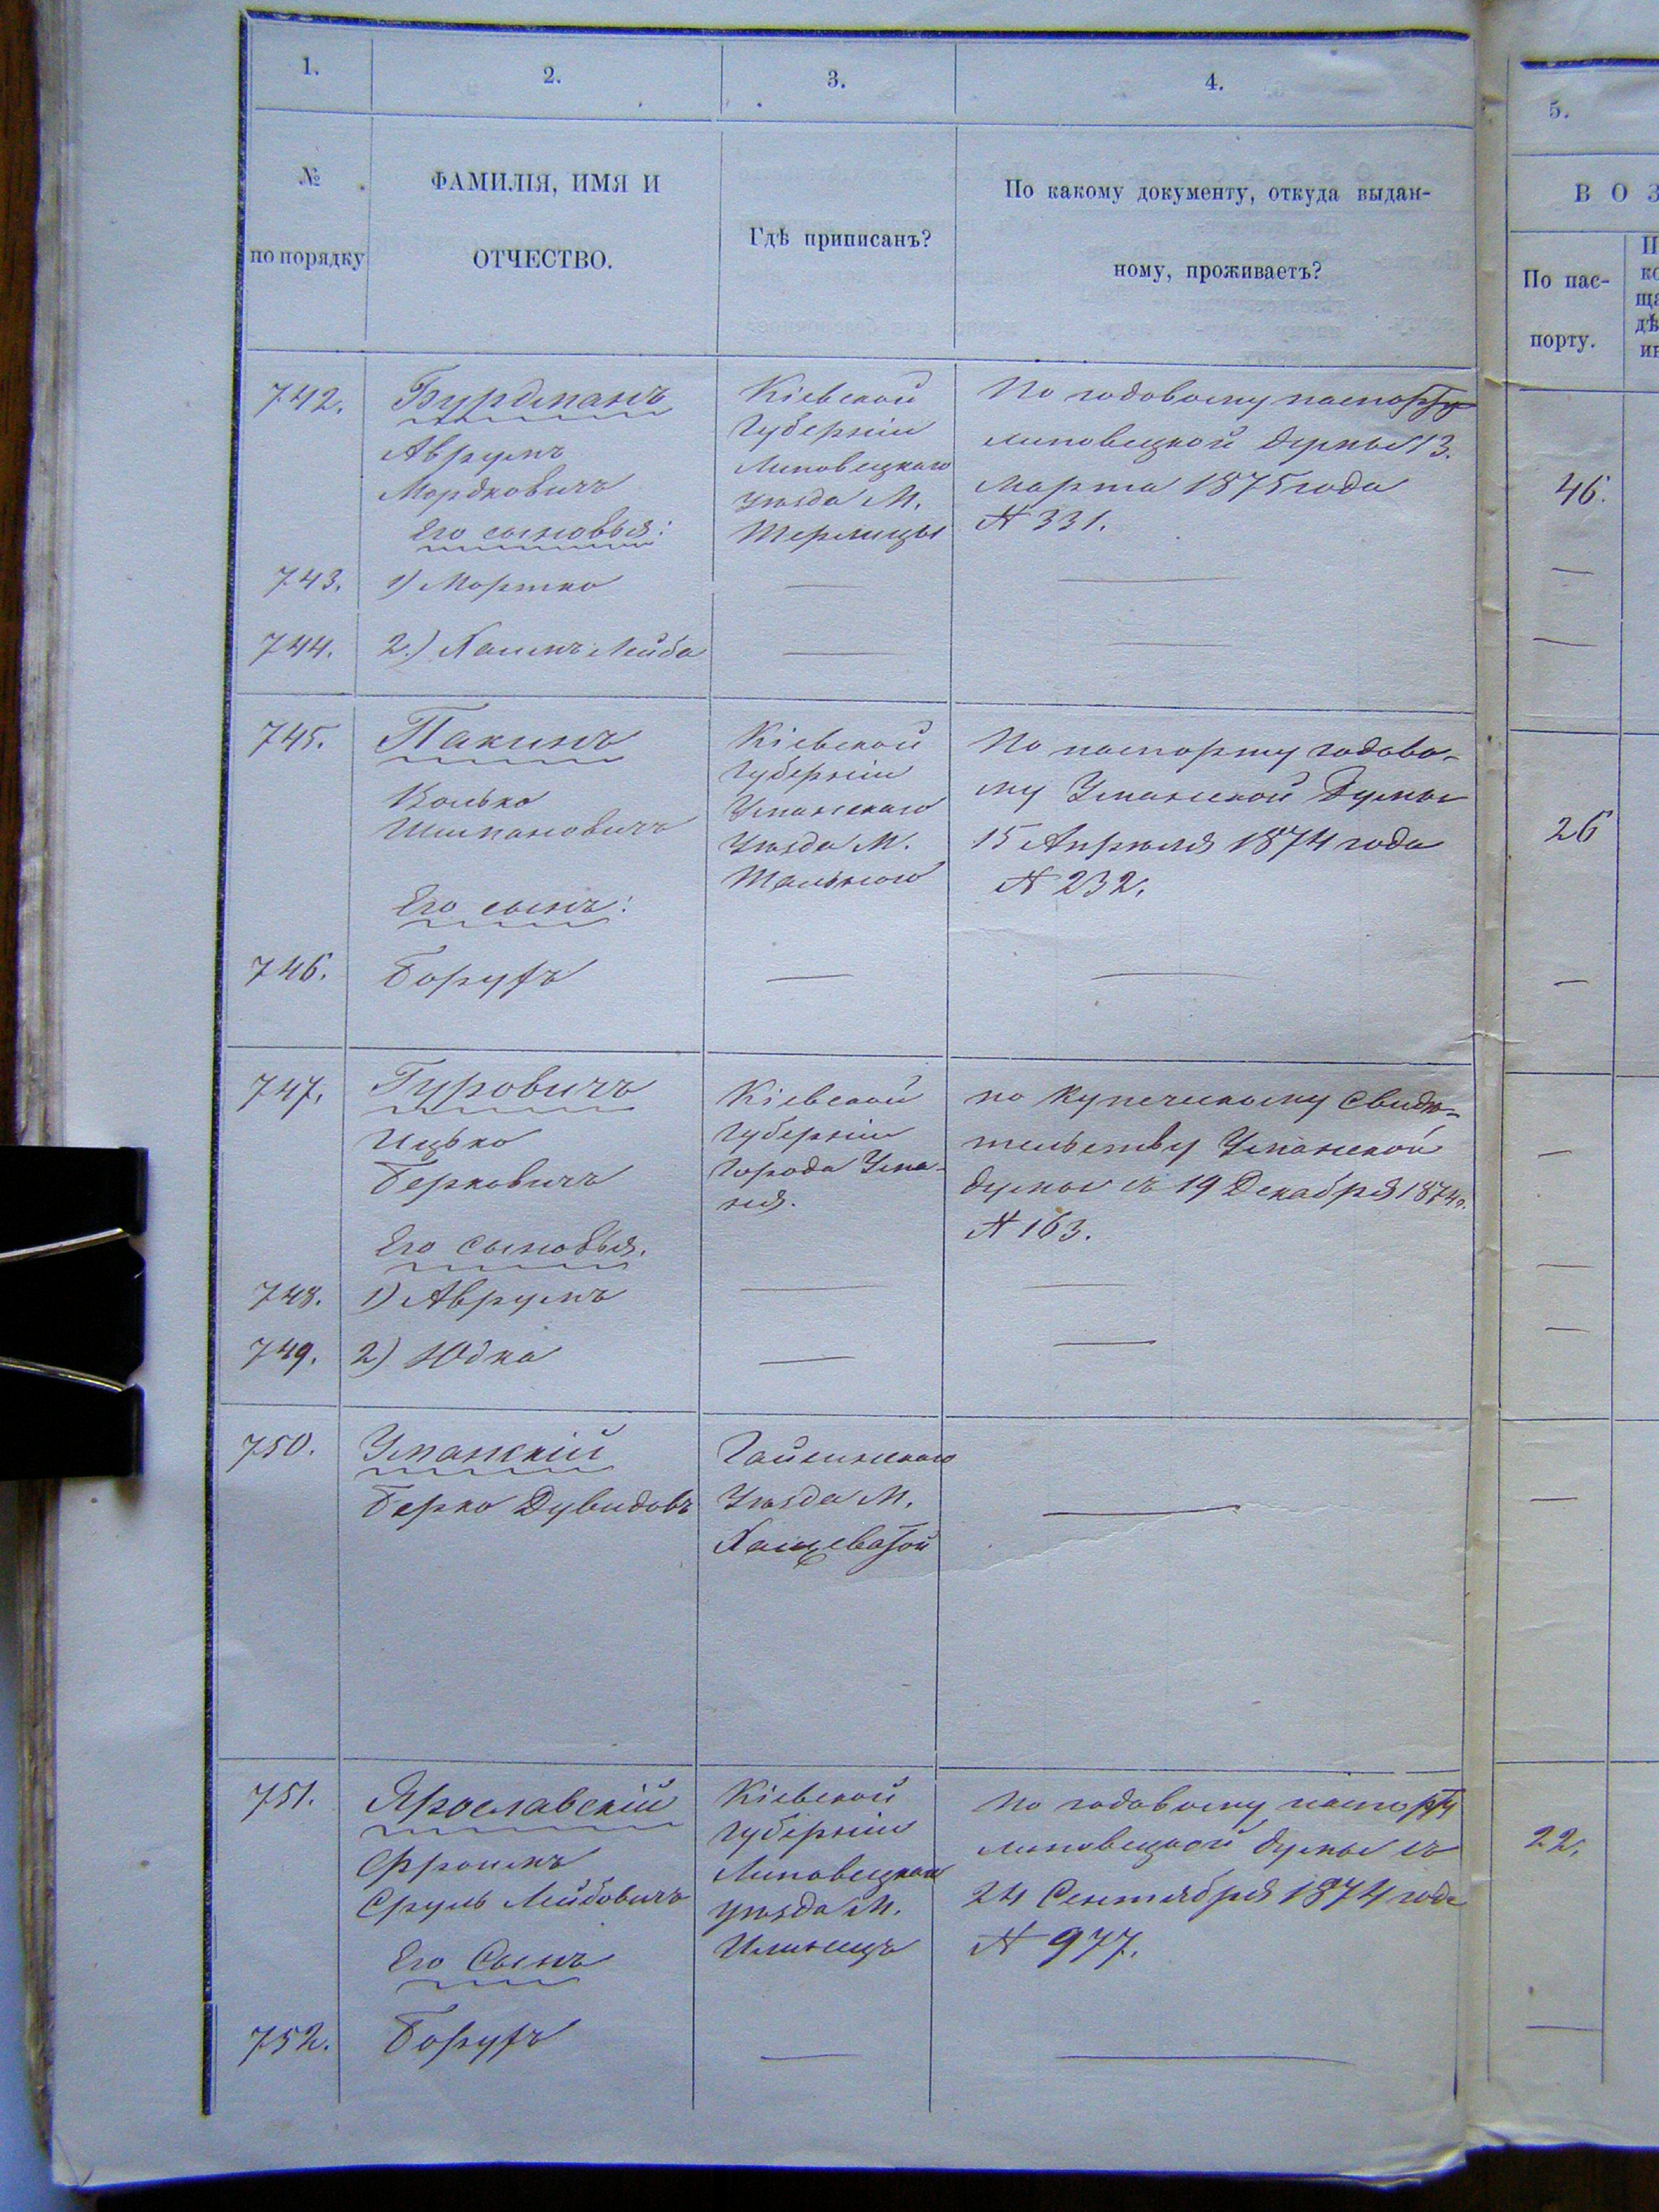 1.
2.
3.
4.
5.
№
по порядку
ФАМИЛІЯ, ИМЯ И
ОТЧЕСТВО.
Гдѣ приписанъ?
По какому документу, откуда выдан-
ному, проживаетъ?
В О З
По пас-
порту.
742.
Бурдманъ
Аврумъ
Мордковичъ
Его сыновья:
Кіевской
Губерніи
Липовецкаго
уѣзда М.
Терлицы
По годовому паспорту
липовецкой Думы 13.
Марта 1875 года
№ 331.
46.
743.
1) Мортко
—
—
—
744.
2.) Хаимъ Лейба
—
—
—
745.
Пакинъ
Шимановичъ
Его сынъ:
Кіевской
Губерніи
Уманскаго
Уѣзда М.
Тальнаго
По паспорту годово-
му Уманской Думы
15 Апрѣля 1874 года
№ 232.
26
746.
Борухъ
—
—
—
747.
Гуровичъ
Ицько
Берковичъ
Его сыновья.
Кіевской
Губерніи
Города Ума-
ня.
по Купеческому свидѣ-
тельству Уманской
думы съ 19 Декабря 1874 г.
№ 163.
—
748.
1) Аврумъ
—
—
—
749.
2) Юдка
—
—
—
750.
Уманскій
Берко Дувидовъ
Гайсинскаго
Уѣзда М.
Хащеватой
—
—
751.
Ярославскій
Фроимъ
Сруль Лейбовичъ
Его Сынъ
Кіевской
губерніи
Липовецкаго
уѣзда М.
Илинецъ
По годовому паспорту
липовецкой думы съ
24 Сентября 1874 года
№ 977.
22.
752.
Борухъ
—
—
—